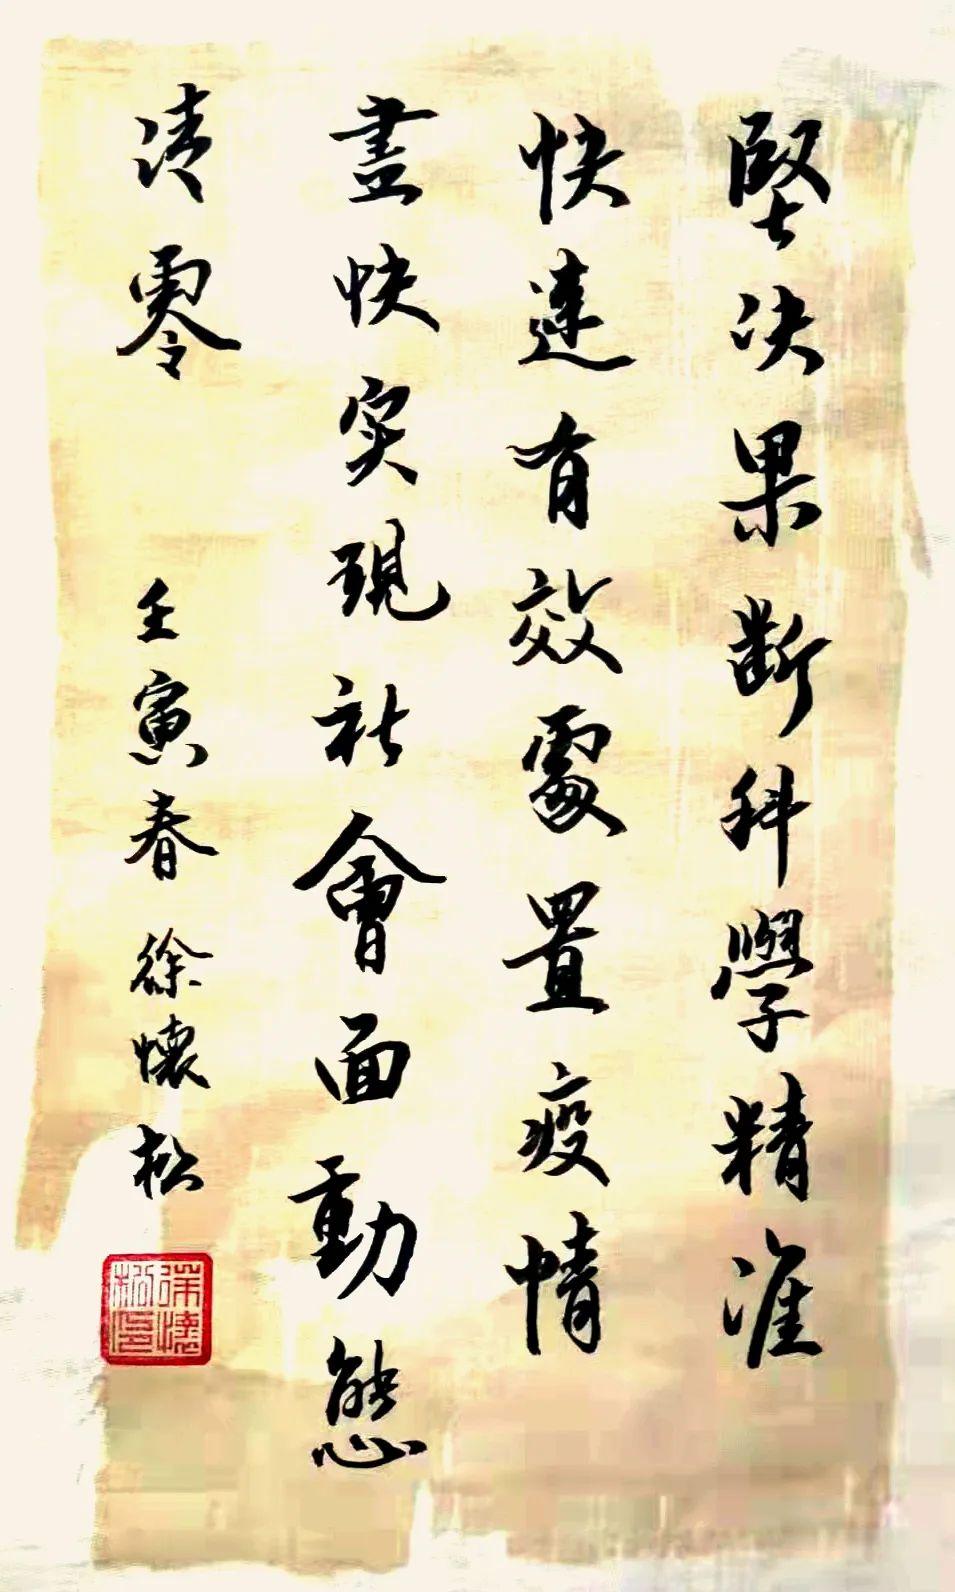 堅决果断科學精准
快速有效處置疫情
盡快实現社會面動態
清零 壬寅春 徐懷松
徐懷松印